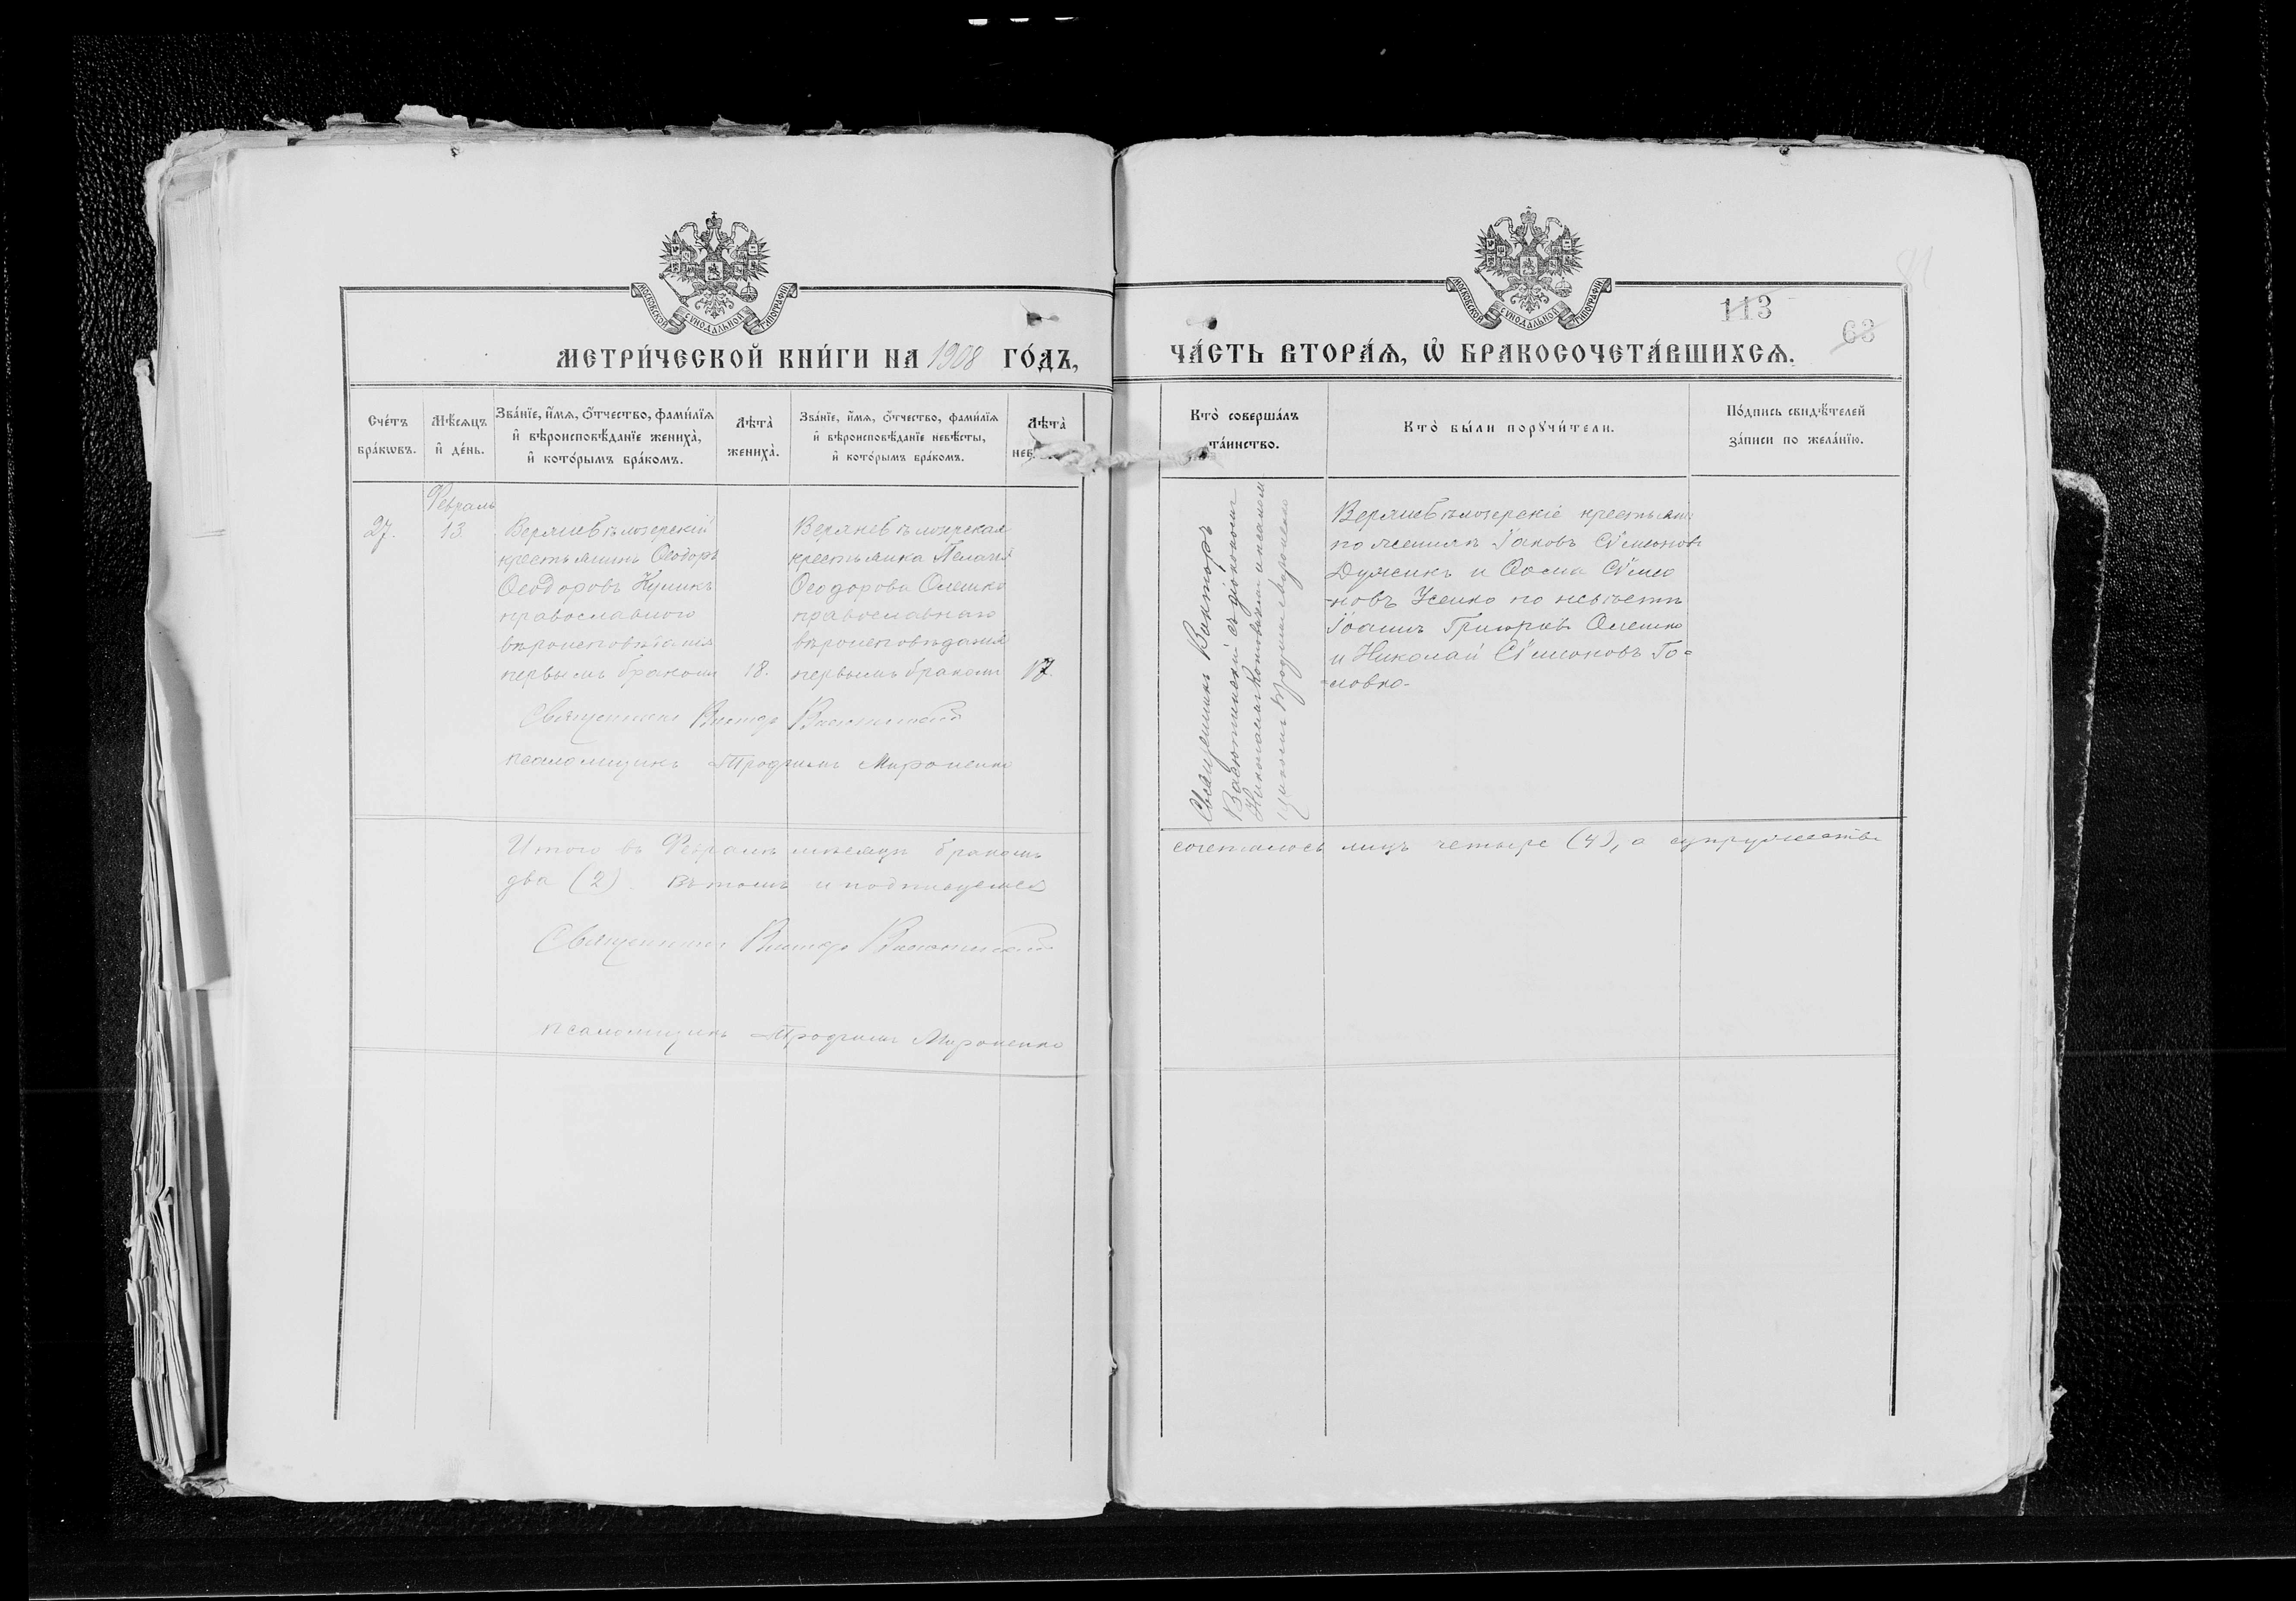 МОСКОВСКОЙ СѴНОДАЛЬНОЙ ТИПОГРАФІИ
МЕТРИ́ЧЕСКОЙ КНИ́ГИ НА 1908 ГО́ДЪ,
Сче́тъ бра́кѡвъ.
Мѣ́сѧцъ и҆ де́нь.
Зва́нїе, и҆́мѧ, ѻ҆́тчество, фами́лїѧ
и҆ вѣроисповѣ́данїе жениха̀,
и҆ кото́рымъ бра́комъ.
Лѣта̀ жениха̀.
Зва́нїе, и҆́мѧ, ѻ҆́тчество, фами́лїѧ
и҆ вѣроисповѣ́данїе невѣ́сты,
и҆ кото́рымъ бра́комъ.
Лѣта̀
27.
Февраль
13.
крестьянинъ Ѳеодоръ
Ѳеодоровъ Куликъ
православного
вѣроисповѣданія
первымъ бракомъ
18.
крестьянка
Ѳеодорова Олешко
православнаго
вѣроисповѣданія
первымъ бракомъ
17.
Священникъ Викторъ
псаломщикъ Трофимъ Мироненко
Итого въ Февралѣ мѣсяцѣ бракомъ
два (2). Въ томъ и подписуемся
Священникъ Викторъ
псаломщикъ Трофимъ Мироненко
МОСКОВСКОЙ СѴНОДАЛЬНОЙ ТИПОГРАФІИ
113
63
ЧА́СТЬ ВТОРА́Ѧ, Ѽ БРАКОСОЧЕТА́ВШИХСѦ.
Кто̀ соверша́лъ
та́инство.
Кто̀ бы́ли порꙋчи́тели.
По́дпись свидѣ́телей
за́писи по жела́нїю.
Священникъ Викторъ
съ діакономъ
Николаемъ и псалом
щикомъ Трофимомъ Мироненко
крестьяне
по женихѣ Іаковъ Сѵмеоновъ
и Ѳома Сѵмео
новъ Усенко по невѣстѣ
Іоаннъ Григорьев Олешко
и Николай Сѵмеоновъ Го=
=ловко.
сочеталось лицъ четыре (4), а супружествъ